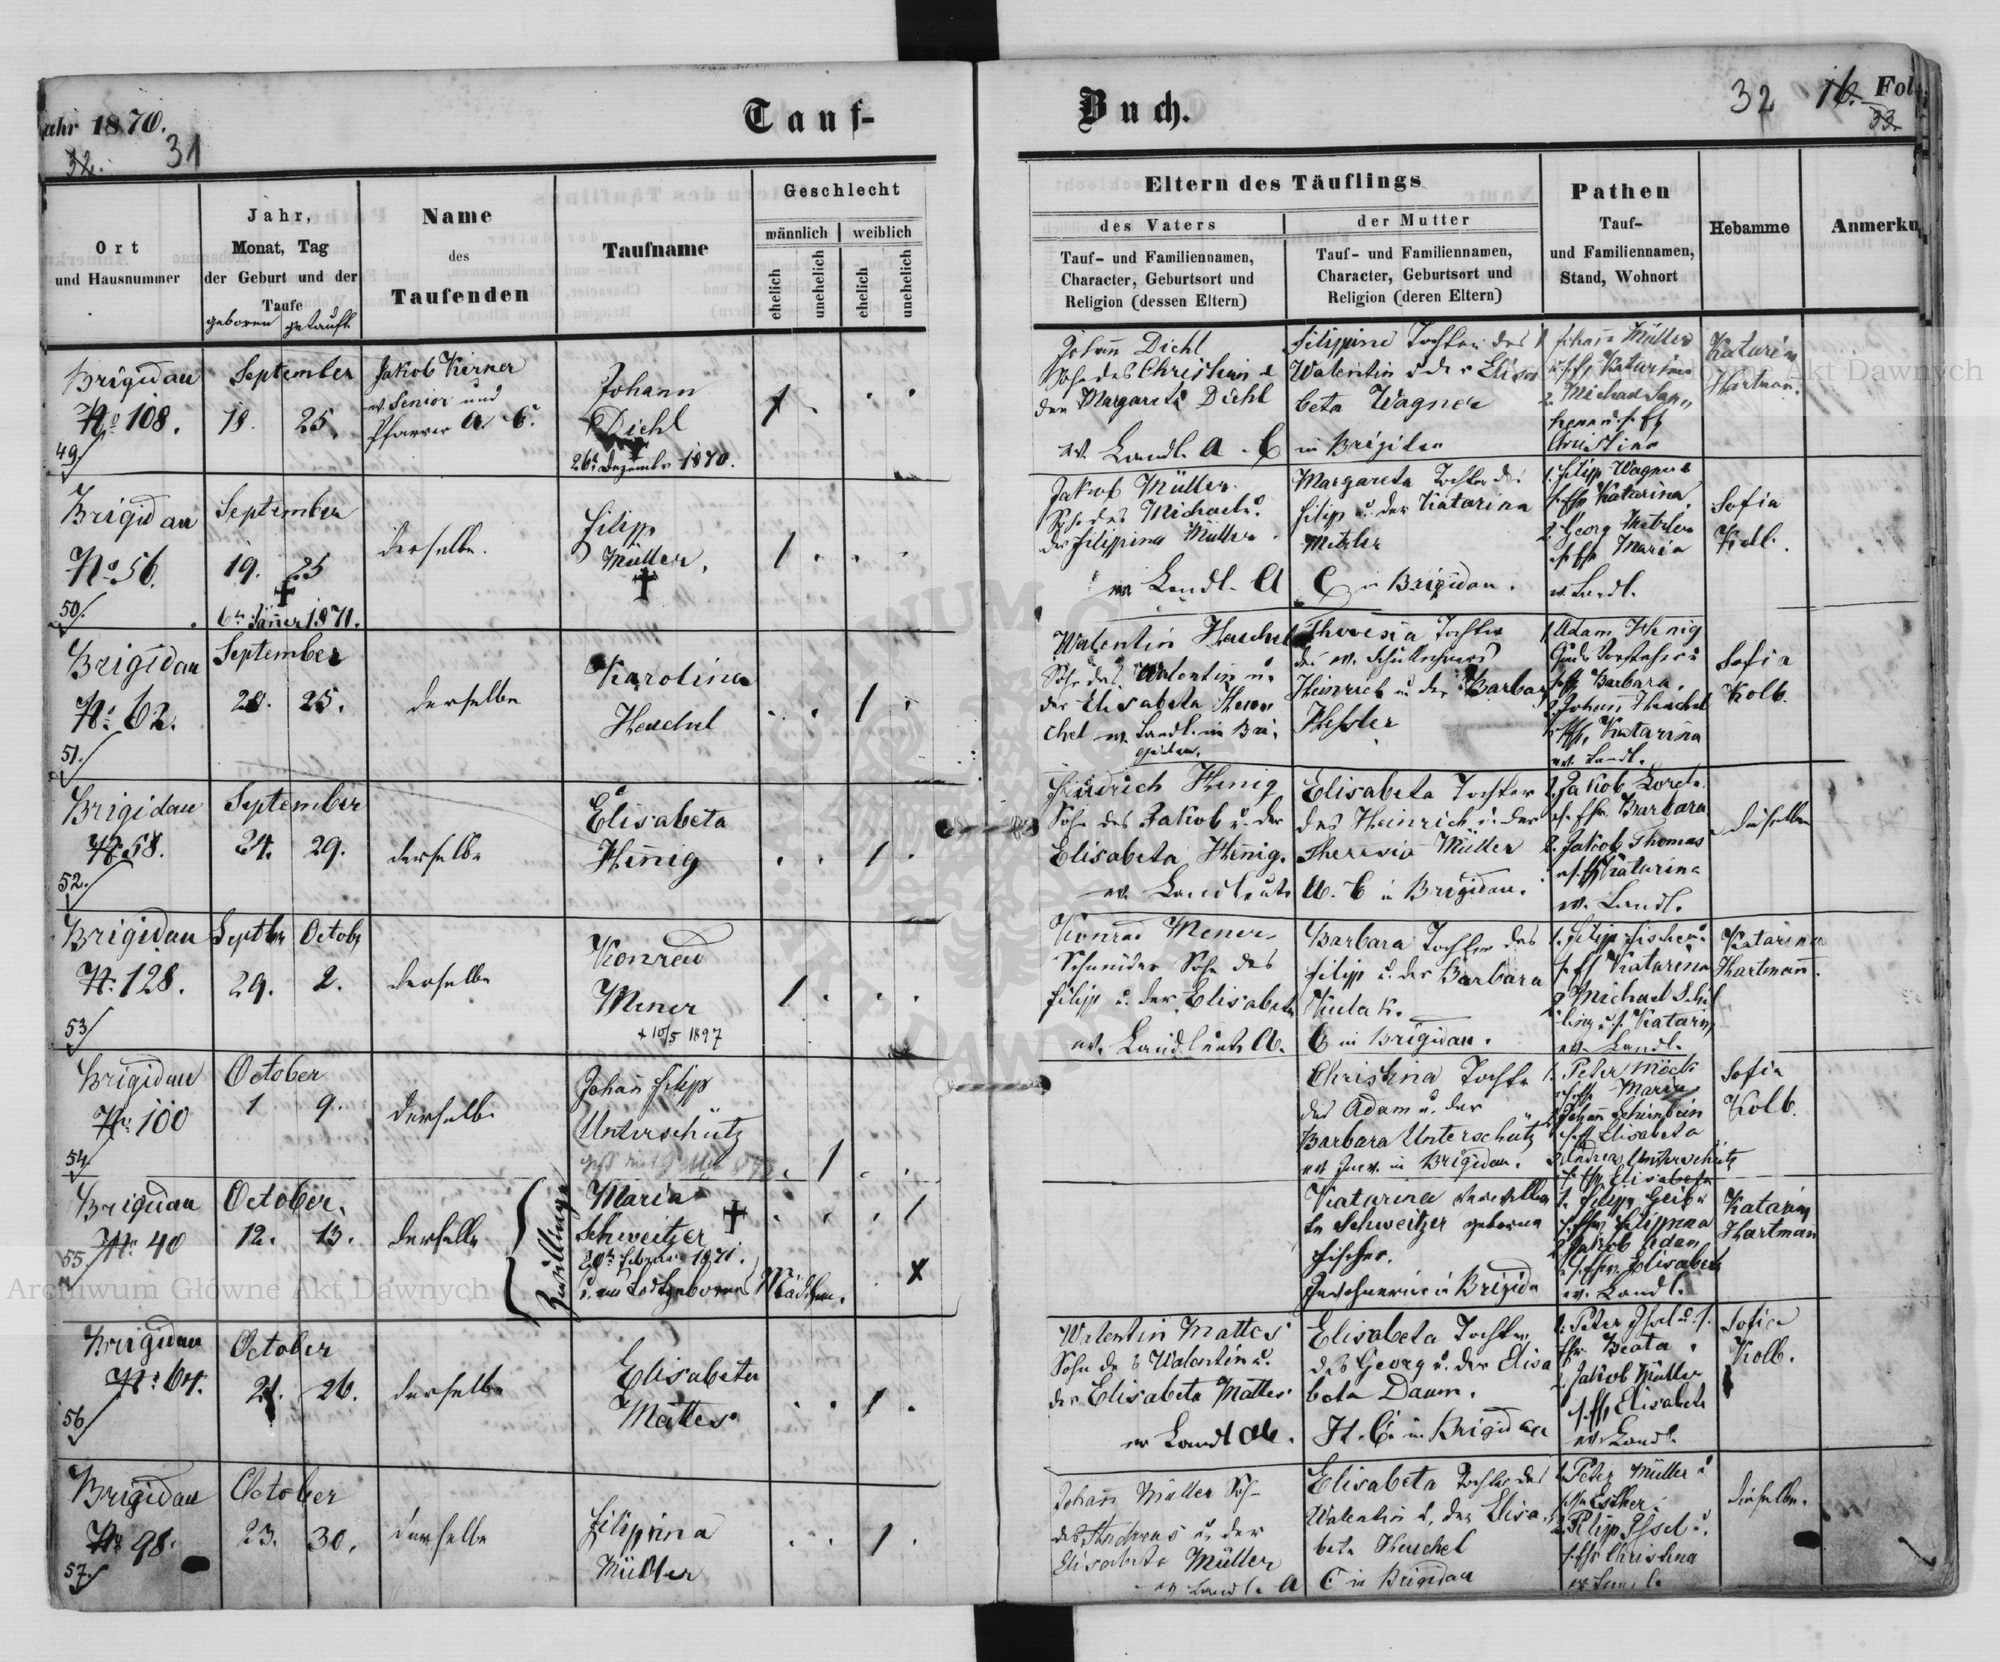 Jahr 1870.
Tauf-
Buch.
32
16.
Fol.
33.
32.
31
Ort
und Hausnummer
Jahr,
Monat, Tag
der Geburt und der
Taufe
geboren getauft
Name
des
Taufenden
Taufname
Geschlecht
männlich weiblich
ehelich
unehelich
ehelich
unehelich
Eltern des Täuflings
des Vaters
Tauf- und Familiennamen,
Character, Geburtsort und
Religion (dessen Eltern)
der Mutter
Tauf- und Familiennamen,
Character, Geburtsort und
Religion (deren Eltern)
Pathen
Tauf-
und Familiennamen,
Stand, Wohnort
Hebamme
Anmerku
Brigidau
No 108.
49/
September
18. 25.
Jakob Kirner
ev. Senior und
Pfarrer A. C.
Johann
Diehl
26t Dezember 1870.
Johann Diehl
Sohn des Christian u
der Margareta Diehl
ev. Landl. A. C
Filipine Tochter des
Walentin u der Elisa
beta Wagner
in Brigidau
1 Johann Müller
u s. Katarina
2. Michael
Christina
Katarina
Hartman.
Brigidau
No 56.
50/
September
19. 25
6tn Jänner 1871.
derselbe.
Filipp
Müller.
Jakob Müller.
Sohn des Michael u.
der Filippina Müller.
ev. Landl. A
Margareta Tochter des
Filip u. der Katarina
Metzler
C in Brigidau.
1. Filipp Wagner
Katarina
2. Georg Metzler
Maria
ev. Landl.
Sofia
Kolb.
Brigidau
No. 62.
51/
September
20. 25.
derselbe
Karolina
Heuchel
Walentin Heuchel
Sohn des Walentin u.
der Elisabeta Heu
chel ev. Landl. in Bri
gidau.
Theresia Tochter
des ev. Schullehrers
Heinrich u der Barbara
1. Adam Hennig
Barbara.
2. Johann Heuchel
Katarina
ev. Landl.
Sofia
Kolb.
Brigidau
No 58.
52./
September
24. 29.
derselbe
Elisabeta
Hennig
Friedrich Hennig
Sohn des Jakob u. der
Elisabeta Hennig.
ev. Landleute
Elisabeta Tochter
des Heinrich u. der
Theresia Müller
A. C in Brigidau.
Barbara
2. Jakob Thomas
Katarina
ev. Landl.
dieselbe
Brigidau
No. 128.
53/
Septbr Octobr
29. 2.
derselbe
Konrad
Mener
+ 10/5 1897
Konrad Mener,
Schneider Sohn des
Filipp u. der Elisabeta
ev. Landleute A.
Barbara Tochter des
Filipp u. der Barbara
Kulak.
C in Brigidau.
1. Filipp Fischer u.
Katarina
2 Michael Schil
ling u. s. Katarina
ev. Landl.
Katarina
Hartmann.
Brigidau
No. 100
54/
October
1 9.
derselbe
Johann Filipp
Unterschütz
Christina Tochter
des Adam u. der
Barbara Unterschütz
ev. Inw. in Brigidau.
1. Peter Möck
Maria
Elisabeta
Unterschütz
Elisabeta
Sofia
Kolb.
Brigidau
No. 40
55./
October.
12. 13.
derselbe
Zwillinge
Maria
Schweitzer
20tn Februar 1871.
u. ein Todtgebornes Mädchen.
Katarina verwittwe
te Schweitzer geborne
Fischer.
Inwohnerin in Brigida
1. Filipp Geib u
Filippina
2. Jakob Adam
Elisabeta
ev. Landl.
Katarina
Hartman
Brigidau
No. 64.
56/
October
21. 26.
derselbe
Elisabeta
Mattes
Walentin Mattes
Sohn des Walentin u.
der Elisabeta Mattes
ev Landl A.
Elisabeta Tochter
des Georg u. der Elisa
beta Daum.
H. C. in Brigidau
1. Peter Issel u. s.
Beata.
2. Jakob Müller
Elisabeta
ev. Landl.
Sofia
Kolb.
Brigidau
No 98.
57./
October
23. 30.
derselbe
Filippina
Müller
Johann Müller Sohn
des Andreas u. der
Elisabeta Müller
ev Landl. A
Elisabeta Tochter des
Walentin u. der Elisa
beta Heuchel
C in Brigidau
1. Peter Müller u
Esther.
2. Filipp Issel u.
Christina
dieselbe.
Archiwum Główne Akt Dawnych
Archiwum Główne Akt Dawnych